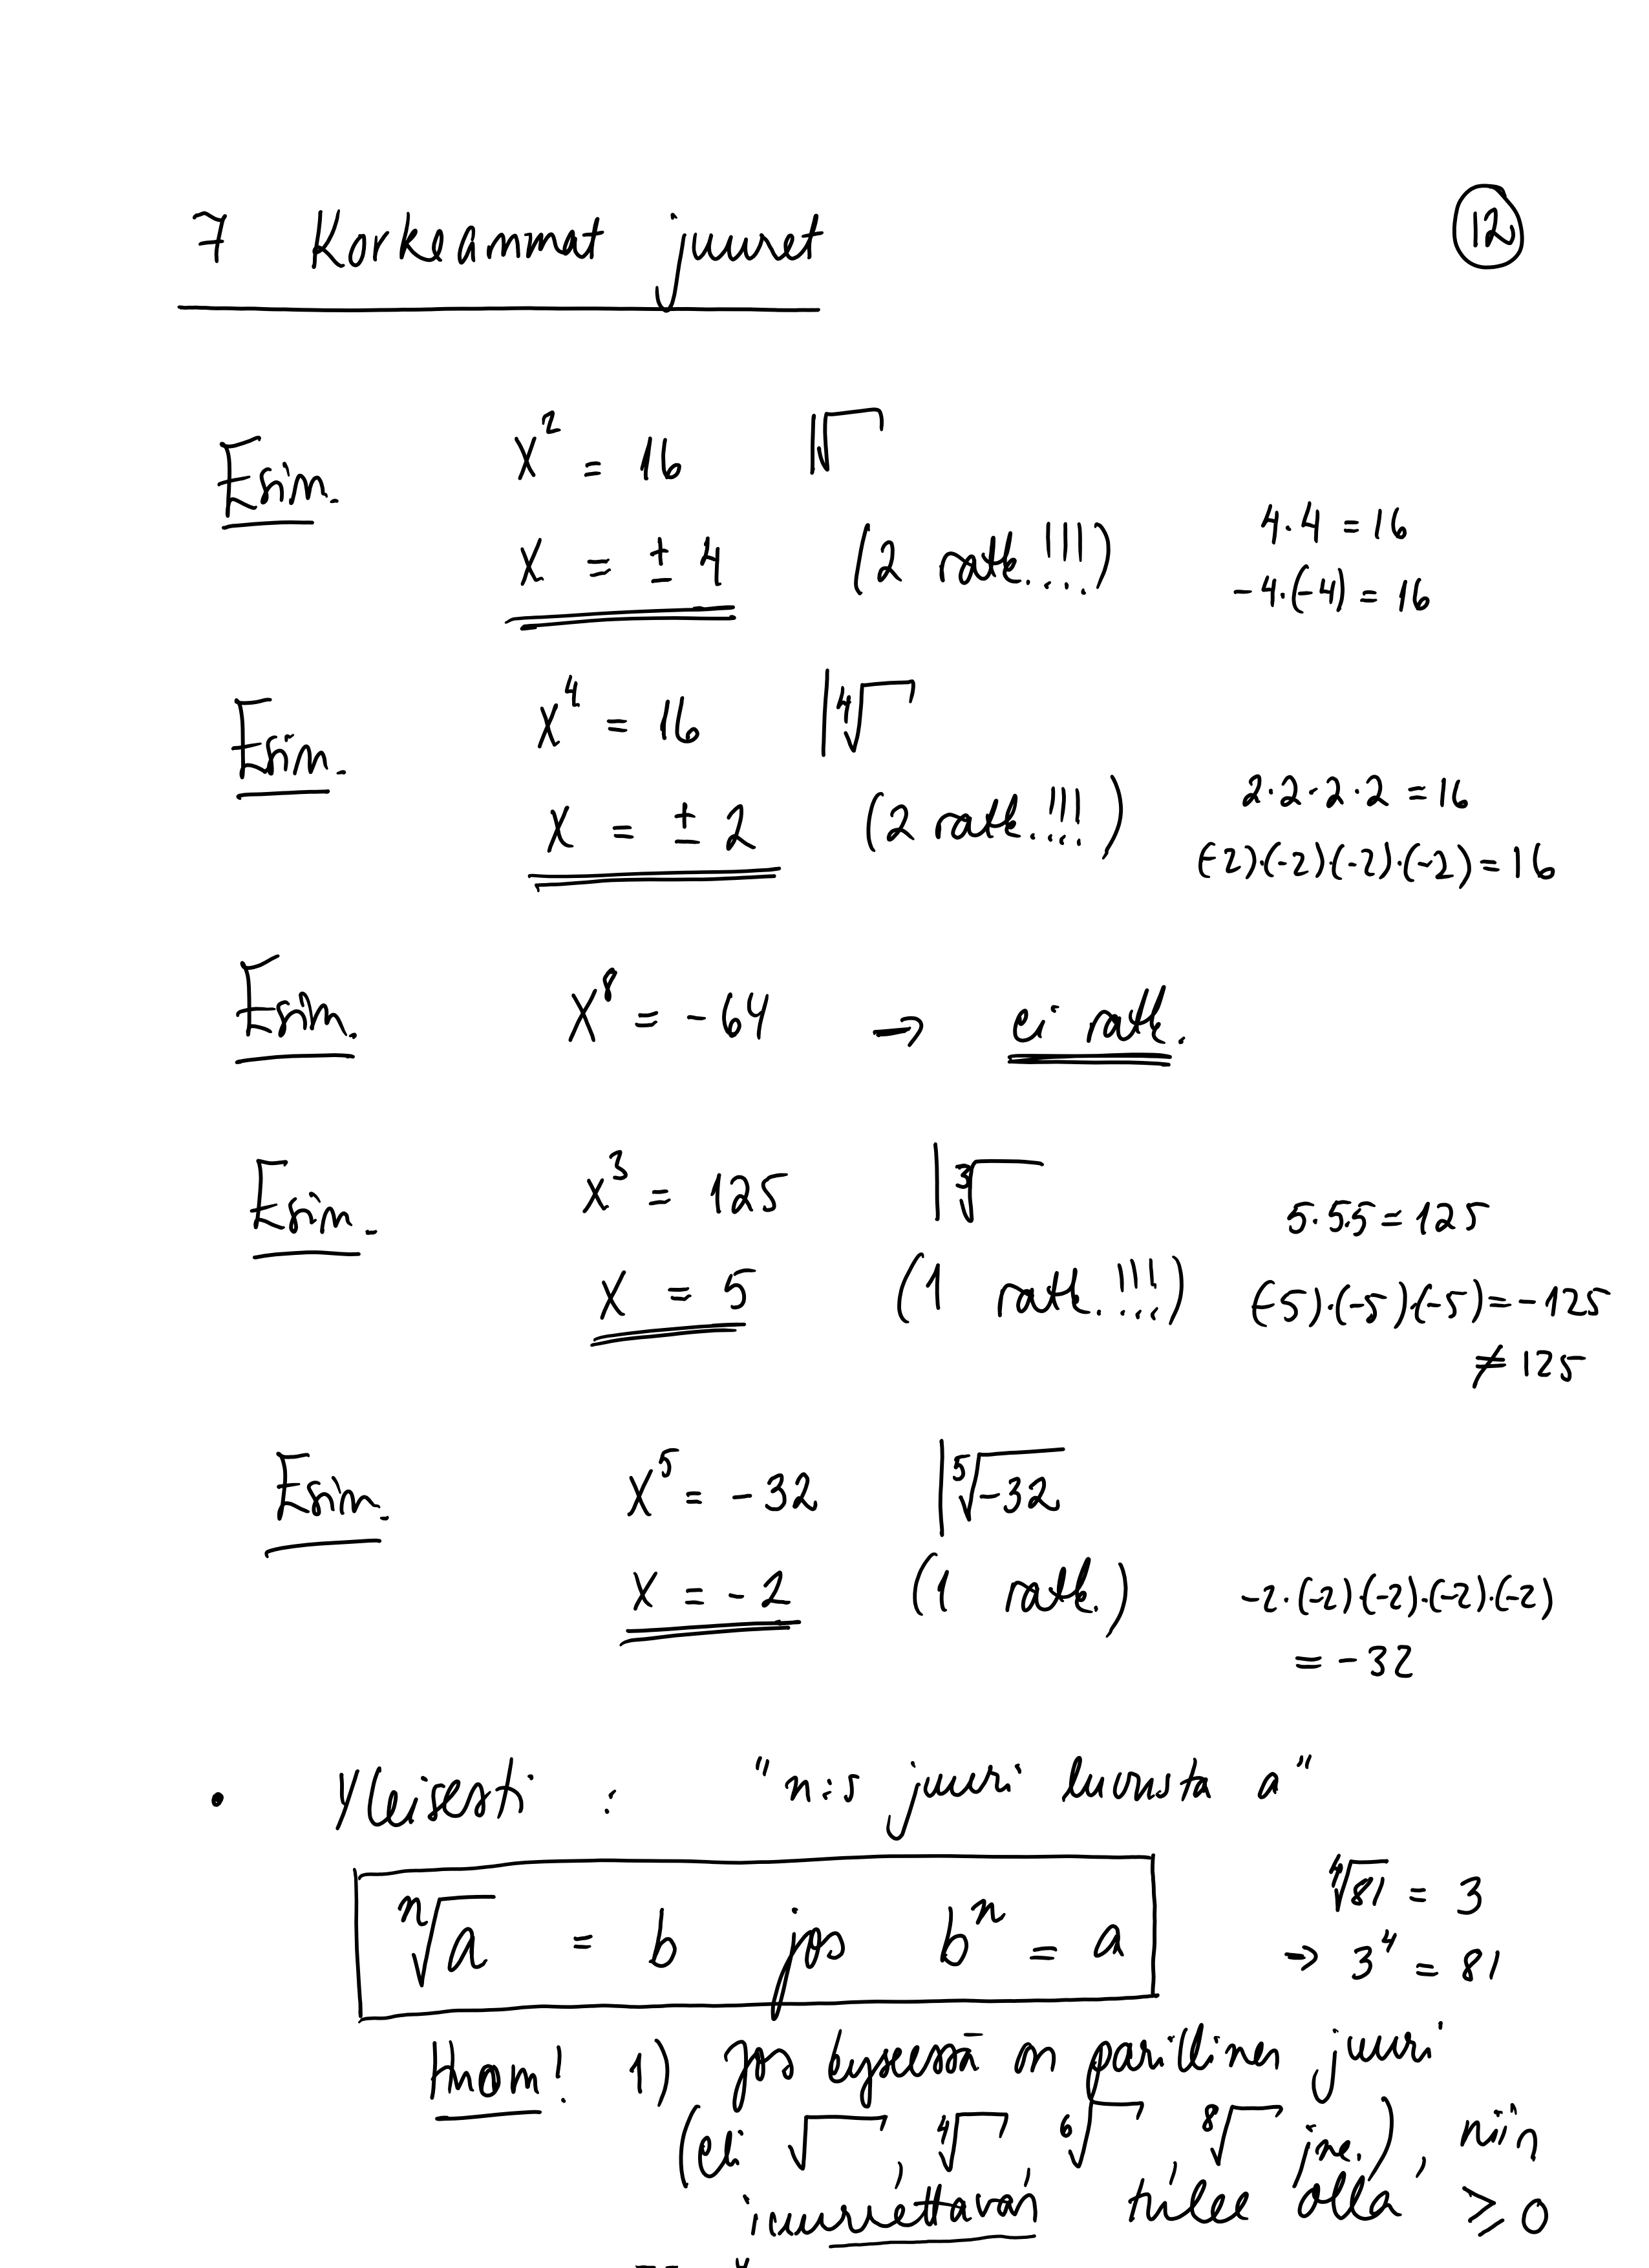 7 Korkeammat juuret
12
Esim. x² = 16 |√
x = ± 4 (2 ratk.!!!) 4·4 = 16
-4·(-4) = 16
Esim. x⁴ = 16 |⁴√
x = ± 2 (2 ratk.!!!) 2·2·2·2 = 16
(-2)·(-2)·(-2)·(-2) = 16
Esim. x⁸ = -64 → ei ratk.
Esim. x³ = 125 |³√
5·5·5 = 125
x = 5 (1 ratk.!!!) (-5)·(-5)·(-5) = -125
≠ 125
Esim. x⁵ = -32 |⁵√-32
x = -2 (1 ratk.) -2·(-2)·(-2)·(-2)·(-2)
= -32
• Yleisesti : "n:s juuri luvusta a"
ⁿ√a = b jos bⁿ = a
⁴√81 = 3
→ 3⁴ = 81
Huom! 1) Jos kyseessä on parillinen juuri
(eli √ , ⁴√ , ⁶√ , ⁸√ jne.), niin
juurrettavan tulee olla ≥ 0